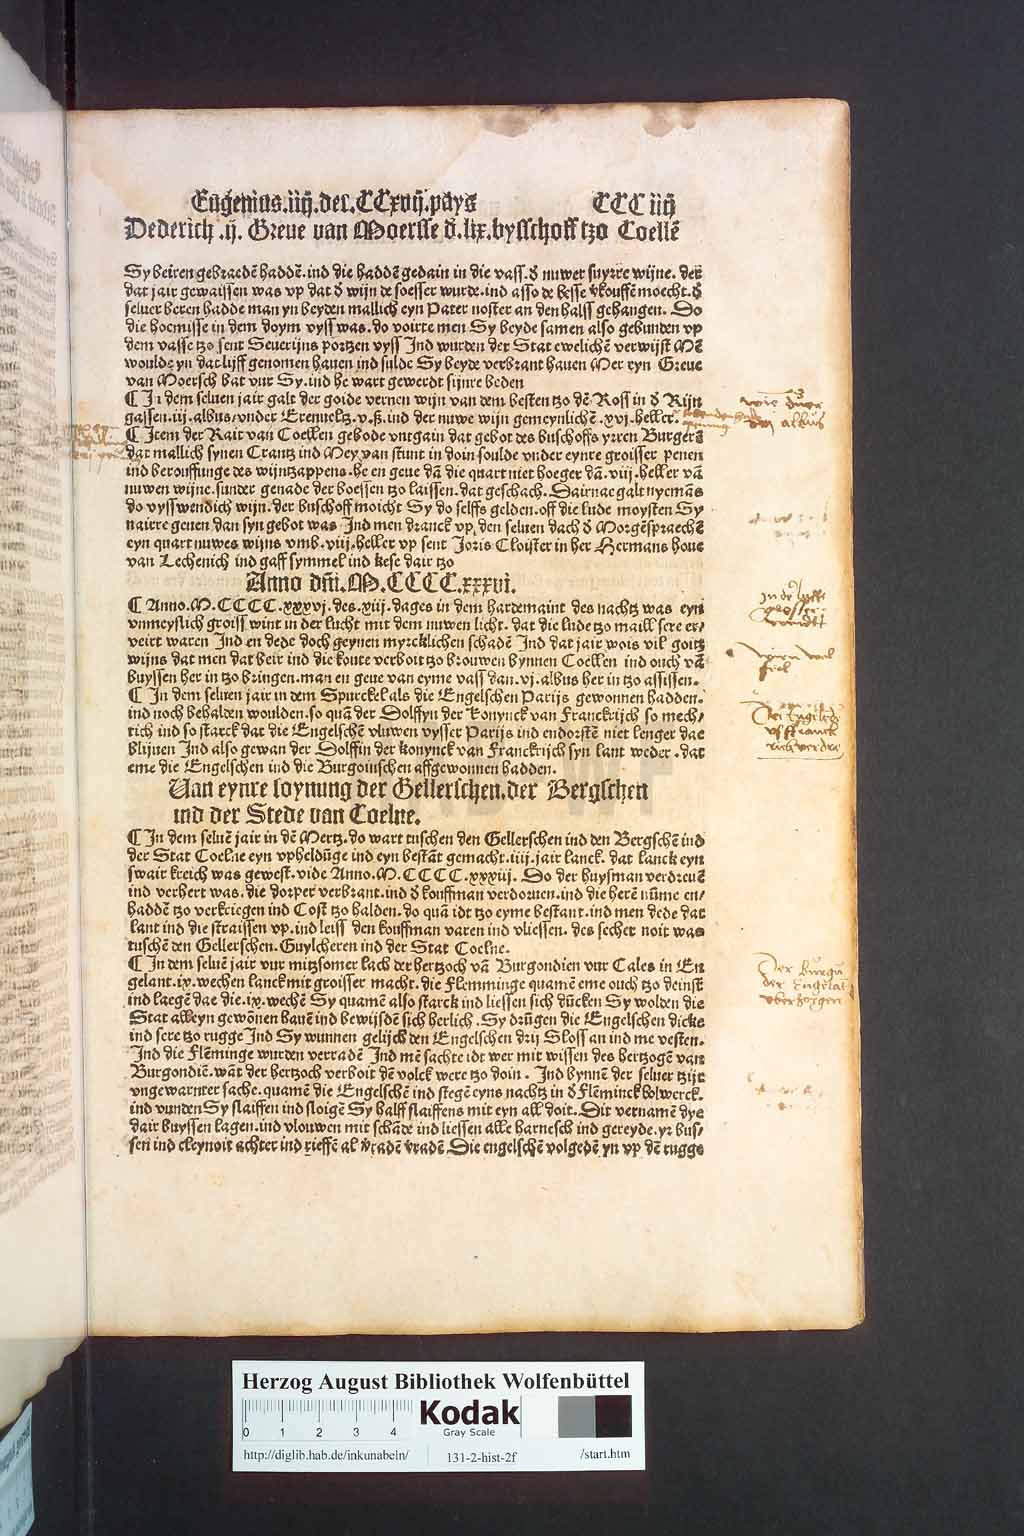 Eugenius.iiij.der.CCxvij.pays CCC iiij
Dederich .ij. Greue van Moersse d.lix.bysschoff tzo Coellē
Sy beiren gebraedē haddē.ind die haddē gedain in die vass.d nuwer suyrre wijne. des
dat jair gewaissen was vp dat d wijn de soesser wurde.ind asso de besse vkouffen moecht.d
seluer beren hadde man yn beyden mallich eyn Pater noster an den halss gehangen. Do
die hoemisse in dem doym vyss was.do voirte men Sy beyde samen also gebunden vp
dem vasse tzo sent Seuerijns portzen vyss Ind wurden der Stat ewelichē verwijst Mē
woulde yn dat lijff genomen hauen ind sulde Sy beyde verbrant hauen Mer eyn Greue
van Moersch bat vur Sy.ind he wart gewerdt sijnre beden
¶ In dem seluen jair galt der goide vernen wijn van dem besten tzo dē Ross in d Rijn
gassen.iij.albus/vnder Erenueltz.v.ß.ind der nuwe wijn gemeynlichē.xvj.heller.
¶ Item der Rait van Coellen gebode vntgain dat gebot des buschoffs yren Burgerē
dat mallich synen Crantz ind Mey van stunt in doin soulde vnder eynre groisser penen
ind berouffunge des wijntzappens.he en geue dā die quart niet hoeger dā.viij.heller vā
nuwen wijne.sunder genade der boessen tzo laissen.dat geschach. Dairnae galt nyemās
do vysswendich wijn.der buschoff moicht Sy do selffs gelden.off die lude moysten Sy
nairre geuen dan syn gebot was Ind men dranck vp.den seluen dach d Morgēspraechē
eyn quart nuwes wijns vmb.viij.heller vp sent Joris Cloister in her Hermans houe
van Lechenich ind gaff symmel ind kese dair tzo
Anno dñi.M.CCCC.xxxvi.
¶ Anno.M.CCCC.xxxvj.des.xiij.dages in dem hardemaint des nachtz was eyn
vnmeyslich groiss wint in der lucht mit dem nuwen licht. dat die lude tzo maill sere er/
veirt waren Ind en dede doch geynen myrcklichen schadē Ind dat jair wois vil goitz
wijns dat men dat beir ind die koute verboit tzo brouwen bynnen Coellen ind ouch vā
buyssen her in tzo bringen.man en geue van eyme vass dan.vj.albus her in tzo assissen.
¶ In dem seluen jair in dem Spurckel als die Engelschen Parijs gewonnen hadden.
ind noch behalden woulden.so quā der Dolffyn der konynck van Franckrijch so mech/
rich ind so starck dat die Engelschē vluwen vysser Parijs ind endorstē niet lenger dae
blijuen Ind also gewan der Dolffin der konynck van Franckrijch syn lant weder .dat
eme die Engelschen ind die Burgoiuschen affgewonnen hadden.
Uan eynre soynung der Gellerschen.der Bergschen
ind der Stede van Coelne.
¶ In dem seluē jair in dē Mertz.do wart tuschen den Gellerschen ind den Bergschē ind
der Stat Coelne eyn vpheldūge ind eyn bestāt gemacht.iiij.jair lanck. dat lanck eyn
swair kreich was gewest.vide Anno.M.CCCC.xxxiij. Do der huysman verdreuē
ind verhert was.die dorper verbrant.ind d kouffman verdoruen.ind die herē nūme en/
haddē tzo verkriegen ind Cost tzo halden.do quā idt tzo eyme bestant.ind men dede dat
lant ind die straissen vp.ind leiss den kouffman varen ind vliessen. des secher noit was
tuschē den Gellerschen.Guylcheren ind der Stat Coelne.
¶ In dem seluē jair vur mitzsomer lach der hertzoch vā Burgondien vur Cales in En
gelant.ix.wechen lanck mit groisser macht.die Flemminge quamē eme ouch tzo deinst
ind laegē dae die.ix.wechē Sy quamē also starck ind liessen sich dūcken Sy wolden die
Stat alleyn gewōnen hauē ind bewijsdē sich herlich .Sy drūgen die Engelschen dicke
ind sere tzo rugge Ind Sy wunnen gelijch den Engelschen drij Sloss an ind me vesten.
Ind die Flēminge wurden verradē Ind mē sachte idt wer mit wissen des hertzogē van
Burgondiē.wāt der hertzoch verboit dē volck were tzo doin . Ind bynnē der seluer tzijt
vngewarnter sache.quamē die Engelschē ind stegē eyns nachtz in d Flēminck bolwerck.
ind vunden Sy slaiffen ind sloigē Sy halff slaiffens mit eyn all doit. Dit vernamē dye
dair buyssen lagen.ind vlouwen mit schāde ind liessen alle harnesch ind gereyde.yr bus/
sen ind cleynoit achter ind rieffē al vradē vradē Die engelschē volgedē yn vp dē rugge
Herzog August Bibliothek Wolfenbüttel
0 1 2 3 4
Kodak
Gray Scale
http://diglib.hab.de/inkunabeln/ 131-2-hist-2f /start.htm